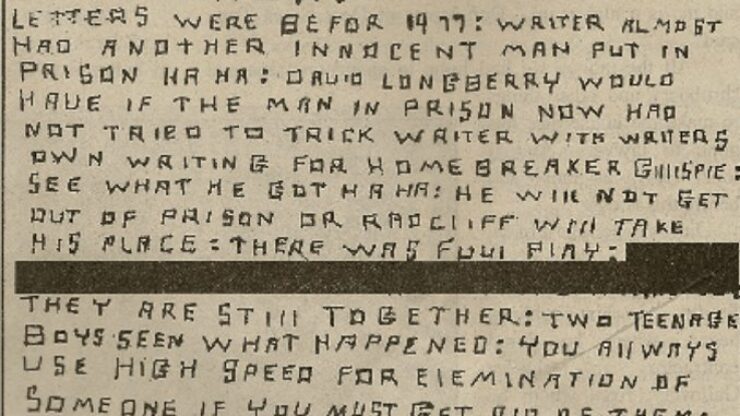 LETTERS WERE BEFOR 1977: WRITER ALMOST
HAD ANOTHER INNOCENT MAN PUT IN
PRISON HA HA: DAVID LONGBERRY WOULD
HAVE IF THE MAN IN PRISON NOW HAD
NOT TRIED TO TRICK WRITER WITH WRITERS
OWN WRITING FOR HOMEBREAKER GILLISPIE:
SEE WHAT HE GOT HA HA: HE WILL NOT GET
OUT OF PRISON OR RADCLIFF WILL TAKE
HIS PLACE: THERE WAS FOUL PLAY:
THEY ARE STILL TOGETHER: TWO TEENAGE
BOYS SEEN WHAT HAPPENED: YOU ALWAYS
USE HIGH SPEED FOR ELEMINATION OF
SOMEONE IF YOU MUST GET RID OF THEM